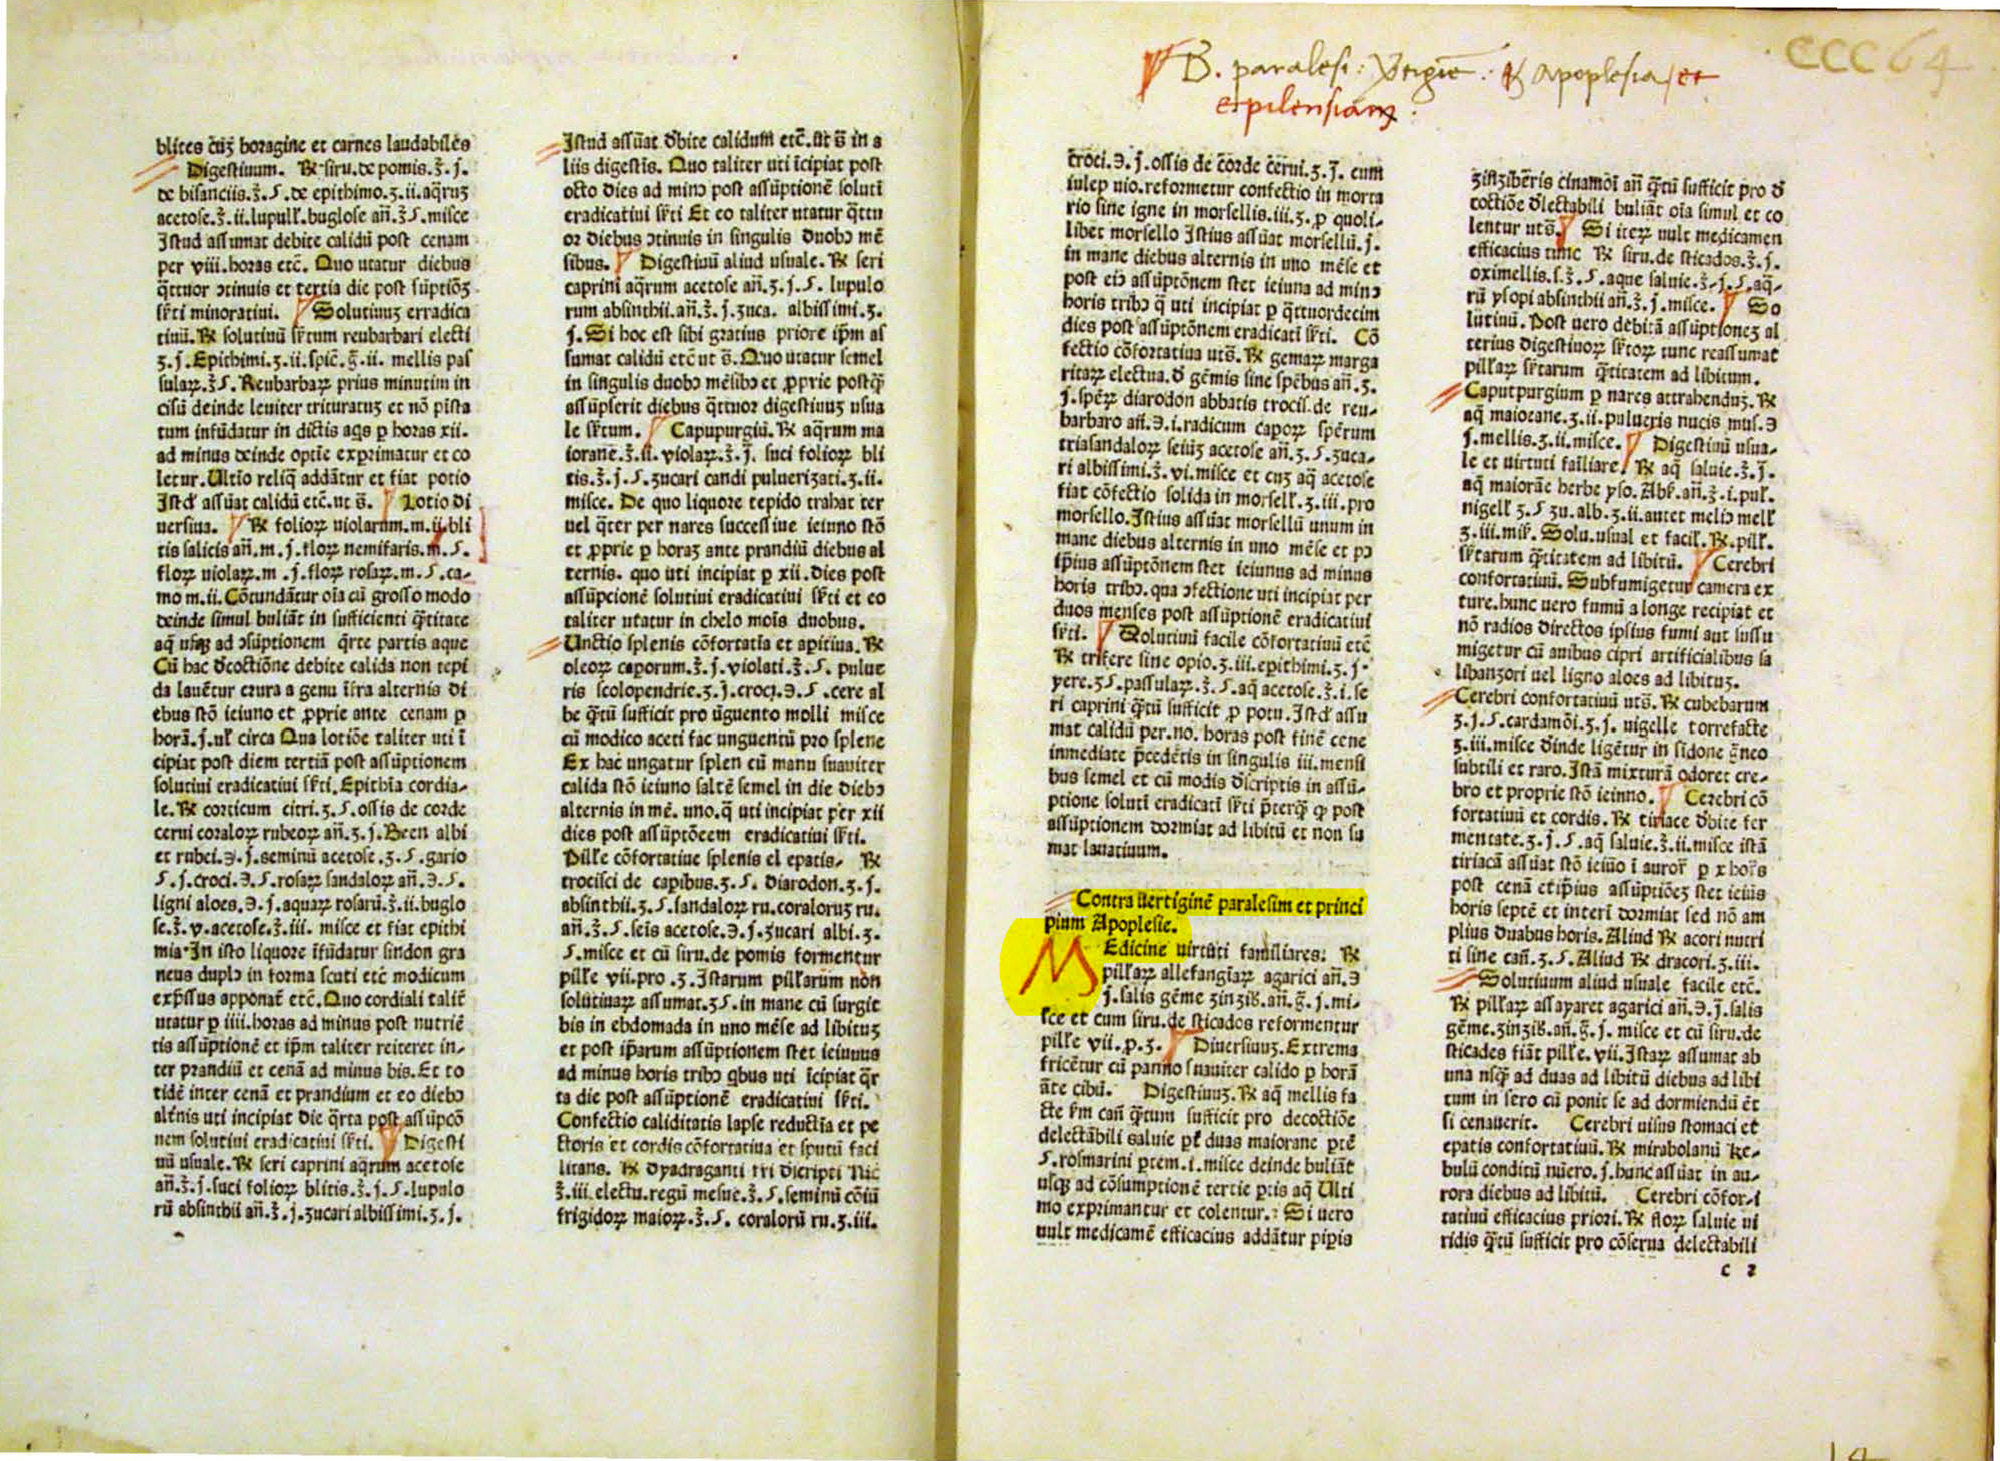 blites cũȝ boragine et carnes laudabiles
Digestiuum. ℞ siru. de pomis. ℥. j.
de bisanciis. ℥. ſ. de epithimo. ʒ. ii. aq̄ruȝ
acetose. ℥. ii. lupull. buglose añ. ℥ ſ. misce
Istud assumat debite calidū post cenam
per viii. horas etc̄. Quo utatur diebus
q̄ttuor ↄtinuis et tertia die post sūptiōȝ
sr̄ti minoratiui. Solutiuuȝ erradica
tiuū. ℞ solutiuū sr̄tum reubarbari electi
ʒ. j. Epithimi. ʒ. ii. spic̄. ḡ. ii. mellis pas
sulaꝝ. ℥ ſ. Reubarbaꝝ prius minutim in
cisū deinde leuiter trituratuȝ et nō pista
tum infūdatur in dictis aqs p horas xii.
ad minus deinde optīe exprimatur et co
letur. Ultīo reliq̄ addātur et fiat potio
Istd̕ assūat calidū etc̄. ut s̄. Lotio di
uersiua. ℞ folioꝝ uiolarum. m. ii. bli
tis salicis añ. m. j. floꝝ nemifaris. m. ſ.
floꝝ uiolaꝝ. m. j. floꝝ rosaꝝ. m. ſ. ca-
mo m. ii. Cōtundātur oīa cū grosso modo
deinde simul buliāt in sufficienti q̄titate
aq̄ usqꝫ ad ↄsūptionem q̄rte partis aque
Cū hac d̕coctiōne debite calida non tepi
da lauētur crura a genu īfra alternis di
ebus stō ieiuno et ꝓprie ante cenam p
horā. j. ul̕ circa Qua lotiōe taliter uti ī
cipiat post diem tertiā post assūptionem
solutiui eradicatiui sr̄ti. Epithīa cordia-
le. ℞ corticum citri. ʒ. ſ. ossis de corde
cerui coraloꝝ rubeoꝝ añ. ʒ. j. Been albi
et rubei. ℈. j. seminū acetose. ʒ. ſ. gario
ſ. j. croci. ℈. ſ. rosaꝝ sandaloꝝ añ. ℈. ſ.
ligni aloes. ℈. j. aquaꝝ rosarū. ℥. ii. buglo
se. ℥. v. acetose. ℥. iii. misce et fiat epithi
mia. In isto liquore īfūdatur sindon gra
neus duplↄ in forma scuti etc̄ modicum
exp̄ssus apponat̄ etc̄. Quo cordiali talit̄
utatur p iiii. horas ad minus post nutriē
tis assūptionē et ip̄m taliter reiteret in-
ter prandiū et cenā ad minus bis. Et to
tidē inter cenā et prandium et eo diebↄ
alt̄nis uti incipiat die q̄rta post assūpcō
nem solutiui eradicatiui sr̄ti. Digesti
uū usuale. ℞ seri caprini aq̄rum acetose
añ. ℥. j. suci folioꝝ blitis. ℥. j. ſ. lupulo
rū absinthii añ. ℥. j. zucari albissimi. ʒ. j.
Istud assūat d̕bite calidum etc̄. ut s̄ in a
liis digestīs. Quo taliter uti īcipiat post
octo dies ad minↄ post assūptionē soluti
eradicatiui sr̄ti Et eo taliter utatur q̄ttu
or diebus ↄtinuis in singulis duobↄ mē
sibus. Digestiuū aliud usuale. ℞ seri
caprini aq̄rum acetose añ. ʒ. j. ſ. lupulo
rum absinthii. añ. ℥. j. zuca. albissimi. ʒ.
j. Si hoc est sibi gratius priore ip̄m as
sumat calidū etc̄ ut s̄. Quo utatur semel
in singulis duobↄ mēsibↄ et ꝓprie postq̄ȝ
assūpserit diebus q̄ttuor digestiuuȝ usua
le sr̄tum. Capupurgiū. ℞ aq̄rum ma
iorane. ℥. ii. violaꝝ. ℥. j. suci folioꝝ bli
tis. ℥. j. ſ. zucari candi puluerizati. ʒ. ii.
misce. De quo liquore tepido trahat ter
uel q̄ter per nares successiue ieiuno stō
et ꝓprie p horaȝ ante prandiū diebus al
ternis. quo uti incipiat p xii. dies post
assūpcionē solutiui eradicatiui sr̄ti et eo
taliter utatur in chelo moīs duobus.
Unctio splenis cōfortatīa et apitiua. ℞
oleoꝝ caporum. ℥. j. violati. ℥. ſ. pulue
ris scolopendrie. ʒ. j. croci. ℈. ſ. cere al
be q̄tū sufficit pro ūguento molli misce
cū modico aceti fac unguentū pro splene
Ex hac ungatur splen cū manu suauiter
calida stō ieiuno saltē semel in die diebↄ
alternis in mē. uno. q̄ uti incipiat per xii
dies post assūptōeem eradicatiui sr̄ti.
Pille cōfortatiue splenis el epatis. ℞
trocisci de capibus. ʒ. ſ. diarodon. ʒ. j.
absinthii. ʒ. ſ. sandaloꝝ ru. coraloruȝ ru.
añ. ℥. ſ. seīs acetose. ℈. j. zucari albi. ʒ.
ſ. misce et cū siru. de pomis formentur
pille vii. pro. ʒ. Istarum pillarum non
solutiuaꝝ assumat. ʒ ſ. in mane cū surgit
bis in ebdomada in uno mēse ad libituȝ
et post ip̄arum assūptionem stet ieiunus
ad minus horis tribↄ qbus uti īcipiat q̄r
ta die post assūptionē eradicatiui sr̄ti.
Confectio caliditatis lapse reductīa et pe
ctoris et cordis cōfortatiua et sputū faci
litans. ℞ dyadraganti fri d̕scripti Nic̄
℥. iii. electu. regū mesue. ℥. ſ. seminū cōiū
frigidoꝝ maioꝝ. ℥. ſ. coralorū ru. ʒ. iii.
B. paralesi: v̕tigiē. & apoplesia et
epilensiam.
CCC 64
croci. ℈. j. ossis de corde cerui. ʒ. j. cum
iulep uio. reformetur confectio in morta
rio sine igne in morsellis. iii. ʒ. p quoli-
libet morsello Istius assūat morsellū. j.
in mane diebus alternis in uno mēse et
post eiↄ assūptōnem stet ieiuna ad minↄ
horis tribↄ q̄ uti incipiat p q̄ttuordecim
dies post assūptōnem eradicati sr̄ti. Cō
fectio cōfortatiua uts̄. ℞ gemaꝝ marga
ritaꝝ electua. d̕ gēmis sine spēbus añ. ʒ.
j. spēꝝ diarodon abbatis trocis. de reu-
barbaro añ. ℈. i. radicum capoꝝ spērum
triasandaloꝝ seiuȝ acetose añ. ʒ. ſ. zuca-
ri albissimi. ℥. vi. misce et cuȝ aq̄ acetose
fiat cōfectio solida in morsell. ʒ. iii. pro
morsello. Istius assūat morsellū unum in
mane diebus alternis in uno mēse et po
ip̄ius assūptōnem stet ieiunus ad minus
horis tribↄ. qua ↄfectione uti incipiat per
duos menses post assūptionē eradicatiui
sr̄ti. Solutiuū facile cōfortatiuū etc̄
℞ trifere sine opio. ʒ. iii. epithimi. ʒ. j.
yere. ʒ ſ. passulaꝝ. ℥. ſ. aq̄ acetose. ℥. i. se
ri caprini q̄tū sufficit p potu. Istd̕ assu
mat calidū per. no. horas post finē cene
inmediate p̄cedētis in singulis iii. mensi
bus semel et cū modis d̕scriptis in assū-
ptione soluti eradicati sr̄ti p̄terq̄ȝ q post
assūptionem dormiat ad libitū et non su
mat lauatiuum.
Contra uertiginē paralesim et princi
pium Apoplesie.
MEdicine uirtuti familiares. ℞
pillaꝝ allefangiaꝝ agarici añ. ℈
j. salis gēme zinzib̄. añ. ḡ. j. mi-
sce et cum siru. de sticados reformentur
pille vii. p. ʒ. Diuersiuuȝ. Extrema
fricētur cū panno suauiter calido p horā
āte cibū. Digestiuuȝ. ℞ aq̄ mellis fa
cte sr̄m cañ q̄tum sufficit pro decoctiōe
delectābili saluie pt̄ duas maiorane ptē
ſ. rosmarini ptem. i. misce deinde buliāt
usqꝫ ad cōsumptionē tertie ptis aq̄ Ulti
mo exprimantur et colentur. Si uero
uult medicamē efficacius addātur pipis
zinziberis cinamoī añ q̄tū sufficit pro d̕
coctiōe d̕lectabili buliāt oīa simul et co
lentur uts̄. Si iteꝝ uult medicamen
efficacius tunc ℞ siru. de sticados. ℥. j.
oximellis. s. ℥. ſ. aque saluie. ℥. j. ſ. aq̄-
rū ysopi absinthii añ. ℥. j. misce. So
lutiuū. Post uero debitā assūptioneȝ al
terius digestiuoꝝ sr̄toꝝ tunc reassumat
pillaꝝ sr̄tarum q̄titatem ad libitum.
Caputpurgium p nares attrahenduȝ. ℞
aq̄ maiorane. ʒ. ii. pulueris nucis mus. ℈
j. mellis. ʒ. ii. misce. Digestiuū usua-
le et uirtuti failiare. ℞ aq̄ saluie. ℥. j.
aq̄ maiorāe herbe yso. Abs̕. añ. ℥. i. pul.
nigell ʒ. ſ zu. alb. ʒ. ii. autet meliↄ mell
ʒ. iii. mis̕. Solu. usual et facil. ℞. pill.
sr̄tarum q̄titatem ad libitū. Cerebri
confortatiuū. Subfumigetur camera ex
ture. hunc uero fumū a longe recipiat et
nō radios directos ipsius fumi aut suffu
migetur cū auibus cipri artificialibus sa
libanzori uel ligno aloes ad libituȝ.
Cerebri confortatiuū uts̄. ℞ cubebarum
ʒ. j. ſ. cardamōi. ʒ. j. nigelle torrefacte
ʒ. iii. misce d̕inde ligētur in sīdone q̄neo
subtili et raro. Istā mixturā odoret cre-
bro et proprie stō ieiuno. Cerebri cō
fortatiuū et cordis. ℞ tiriace d̕bite fer
mentate. ʒ. j. ſ. aq̄ saluie. ℥. ii. misce istā
tiriacā assūat stō ieiuīo ī auror̄ p x hor̄s
post cenā et ip̄ius assūptiōeȝ stet ieiūs
horis septē et interī dormiat sed nō am
plius duabus horis. Aliud ℞ acori nutri
ti sine cañ. ʒ. ſ. Aliud ℞ dracori. ʒ. iii.
Solutiuum aliud usuale facile etc̄.
℞ pillaꝝ assayaret agarici añ. ℈. j. salis
gēme. zinzib̄. añ. ḡ. j. misce et cū siru. de
sticades fiāt pille. vii. Istaꝝ assumat ab
una usq̄ȝ ad duas ad libitū diebus ad libi
tum in sero cū ponit se ad dormiendū et̄
si cenauerit. Cerebri uisus stomaci et
epatis confortatiuū. ℞ mirabolanū ke-
bulū conditū nūero. j. hunc assūat in au-
rora diebus ad libitū. Cerebri cōfor-
tatiuū efficacius priori. ℞ floꝝ saluie ui
ridis q̄tū sufficit pro cōserua delectabili
c 2